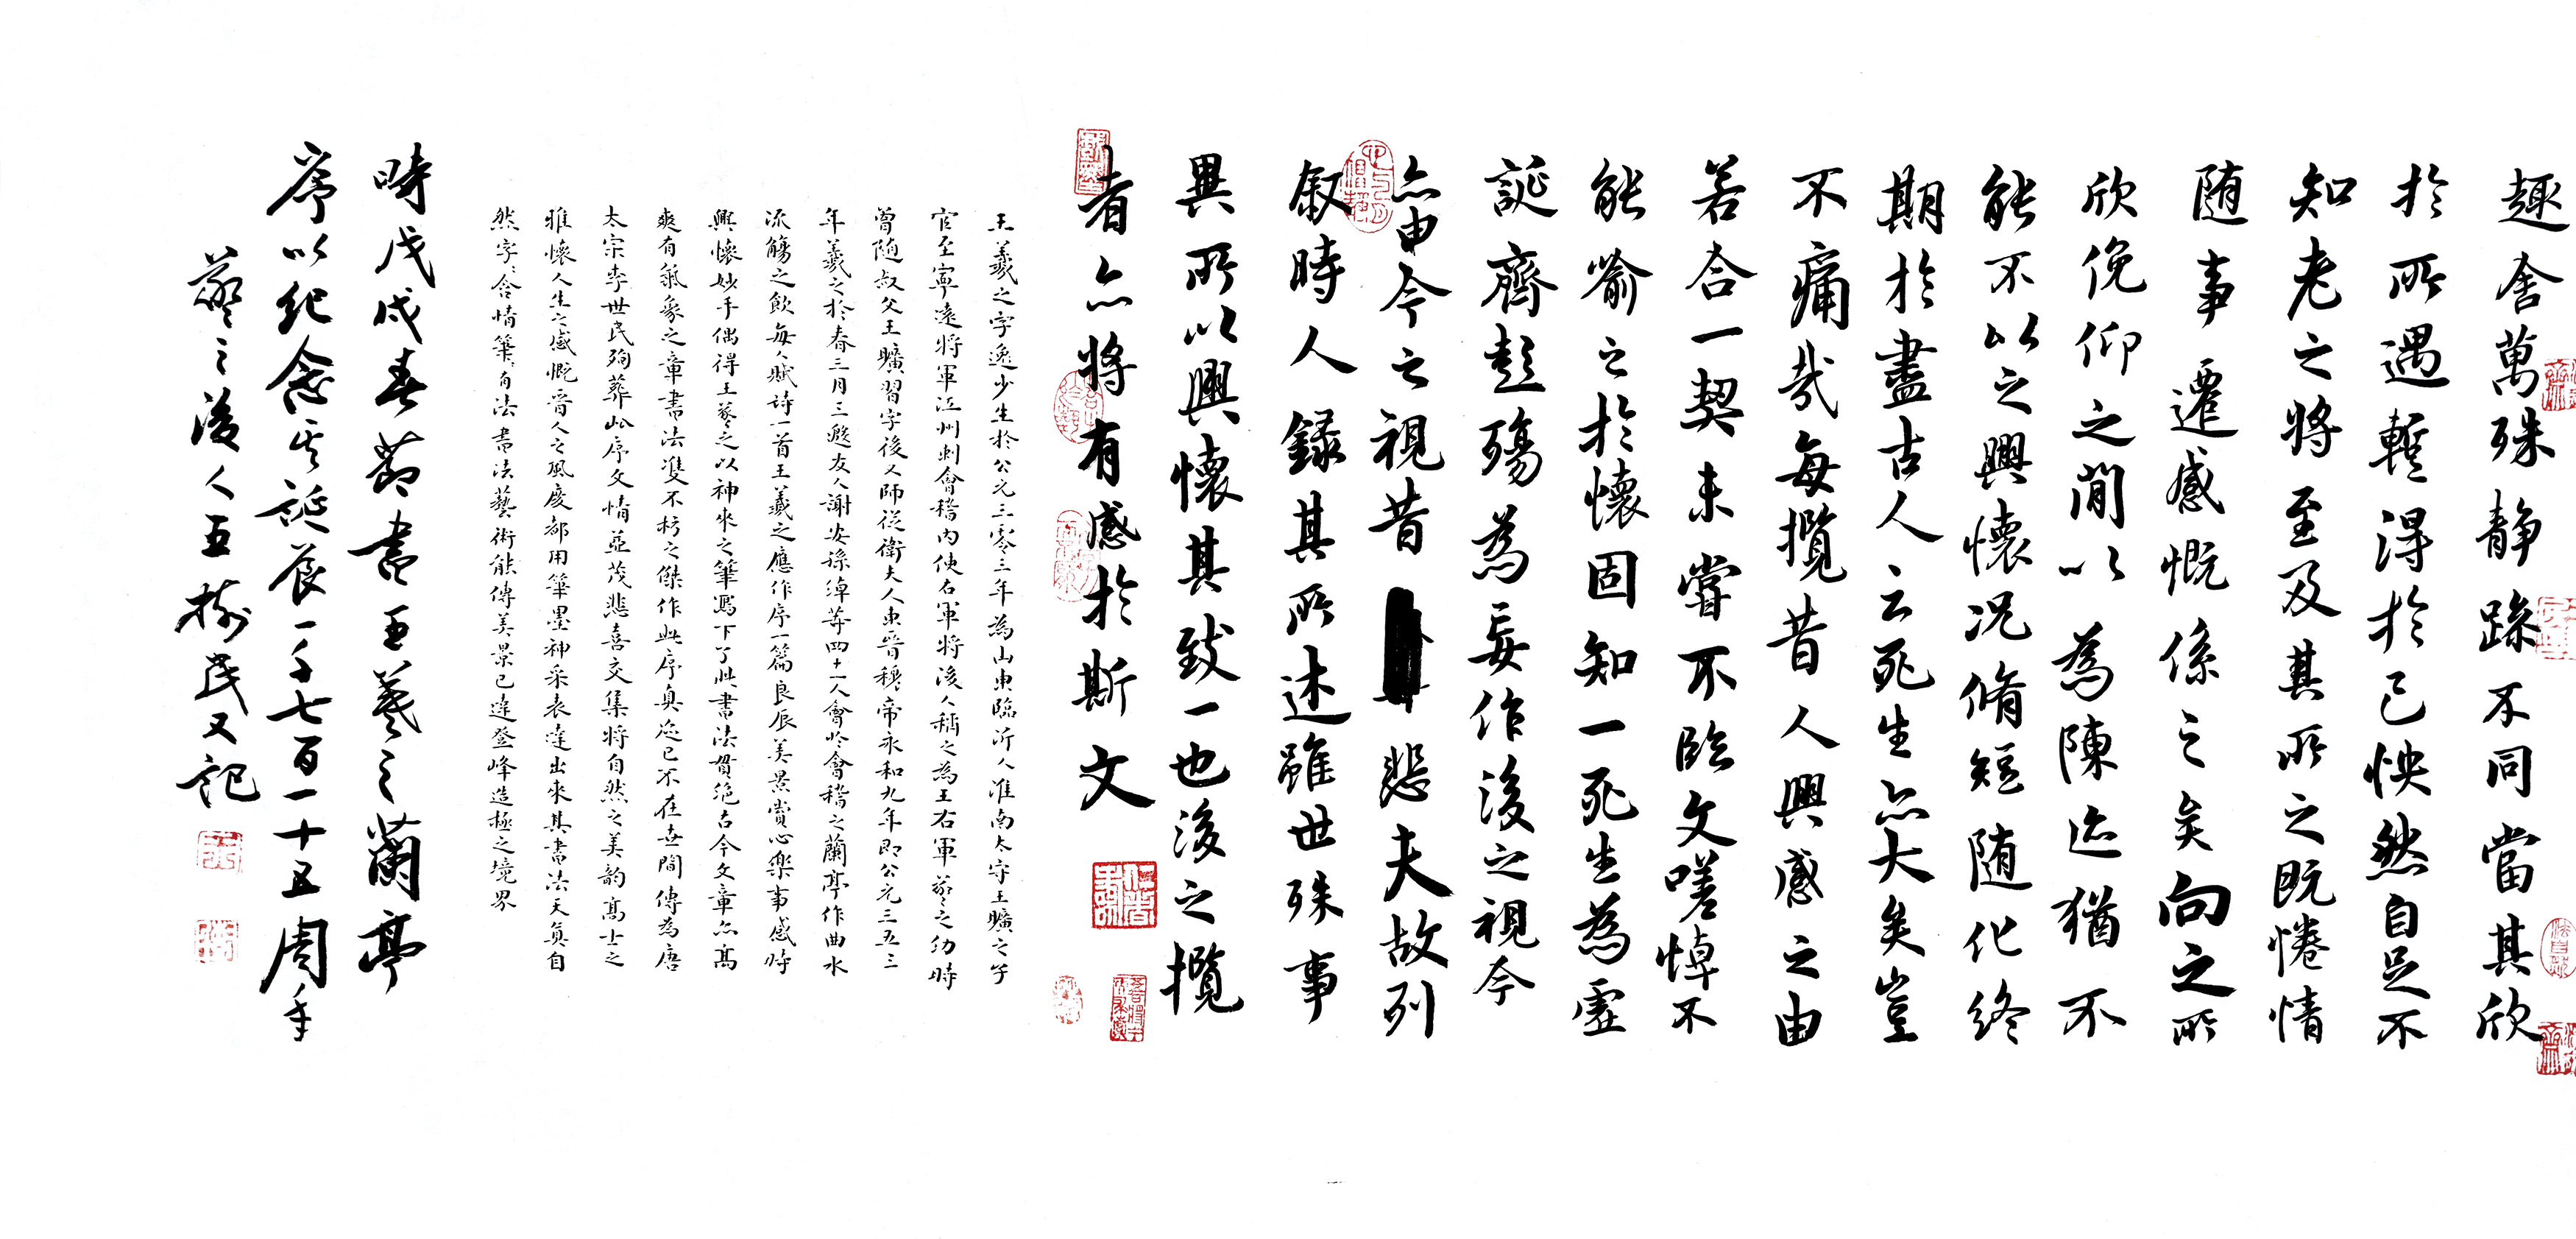 趣舍萬殊静躁不同當其欣
於所遇暫得於己怏然自足不
知老之將至及其所之既惓情
随事遷感慨係之矣向之所
欣俛仰之閒以為陳迹猶不
能不以之興懷況脩短随化終
期於盡古人云死生亦大矣豈
不痛哉每攬昔人興感之由
若合一契未嘗不臨文嗟悼不
能喻之於懷固知一死生為虛
誕齊彭殤為妄作後之視今
亦由今之視昔悲夫故列
叙時人録其所述雖世殊事
異所以興懷其致一也後之攬
者亦將有感於斯文
王羲之字逸少生於公元三零三年為山東臨沂人淮南太守王曠之子
官至寧遠將軍江州刺會稽內使右軍將後人稱之為王右軍羲之幼時
曾随叔父王曠習字後又師従衛夫人東晉穆帝永和九年即公元三五三
年羲之於春三月三邀友人謝安孫淖等四十一人會於會稽之蘭亭作曲水
流觴之飲每人賦诗一首王羲之應作序一篇良辰美景賞心樂事感时
興懷妙手偶得王羲之以神來之筆寫下了此書法貫絶古今文章亦髙
爽有氣象之章書法雙不朽之傑作此序真迹已不在世間傳為唐
太宗李世民殉葬此序文情並茂悲喜交集将自然之美韵髙士之
雅懷人生之感慨晉人之風度都用筆墨神采表達出來其書法天真自
然字字含情筆筆有法書法藝術能傳美景已達登峰造極之境界
時戊戌春節書王羲之蘭亭
序以纪念其誕辰一千七百一十五周年
羲之後人王樹民又記